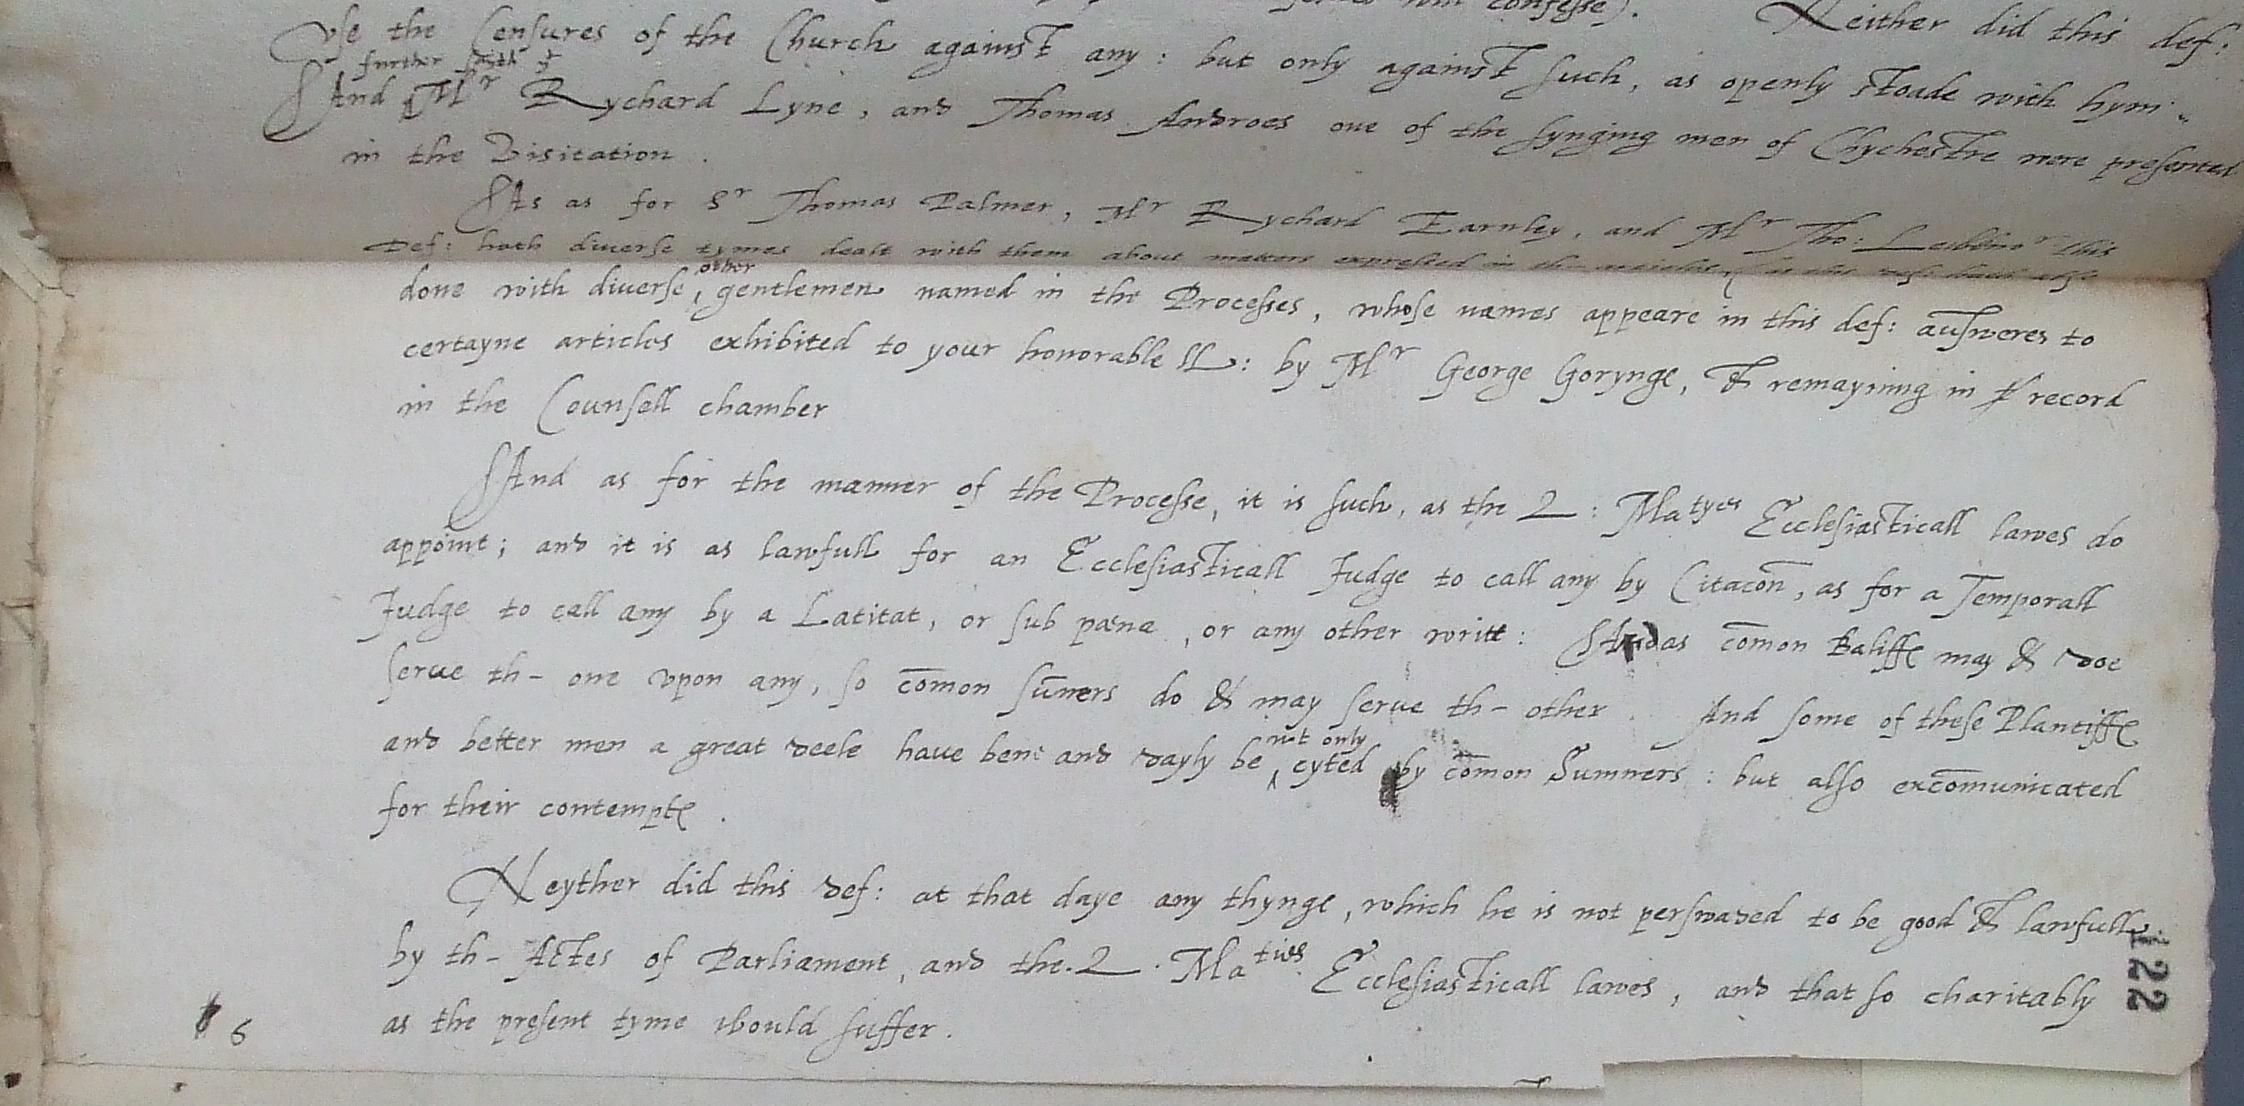 confesse). Neither did this def:
vse the Censures of the Church against any: but only against such, as openly stoade with hym
further saith yt
And ‸Mr Rychard Lyne, and Thomas Androes one of the synging men of Chychestre were presented
in the Visitation.
As as for Sr Thomas Palmer, Mr Rychard Earnley, and Mr Tho: Leukno r this
Def: hath diuerse tymes dealt with them about matters expressed in th-
other
done with diuerse‸ gentlemen named in the Processes, whose names appeare in this def: answeres to
certayne articles exhibited to your honorable LL: by Mr George Gorynge, & remayning in record
in the Counsell chamber
And as for the manner of the Processe, it is such, as the Q: Matyes Ecclesiasticall lawes do
appoint; and it is as lawfull for an Ecclesiasticall Judge to call any by Citacōn, as for a Temporall
Judge to call any by a Latitat, or sub pœna, or any other writt: And as cōmon Baliffes may & doe
serue th- one vpon any, so cōmon sūners do & may serue th- other. And some of these Plantiffes
and better men a great deele have bene and dayly be ‸not only cyted by cōmon Sumners: but also excōmunicated
for their contemptes.
Neyther did this def: at that daye any thynge, which he is not perswaded to be good & lawfull
by th- Actes of Parliament, and the Q. Maties Ecclesiasticall lawes, and that so charitably
as the present tyme would suffer.
6
122